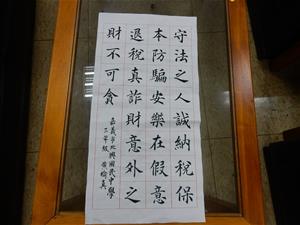 守法之人誠納稅保
本防騙安樂在假意
退稅真詐財意外之
財不可貪
嘉義市北興國民中學
三年級 黃榆真